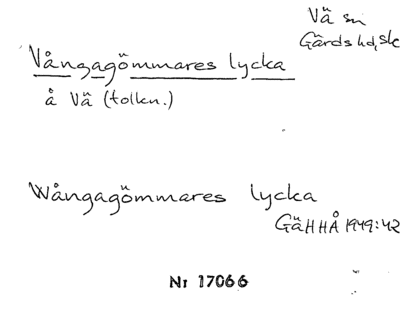 Vä sn
Gärds hd, Sk
Vångagömmares lycka
å Vä (tolkn.)
Wångagömmares lycka
GäHHÅ 1949:42
Nr 17066